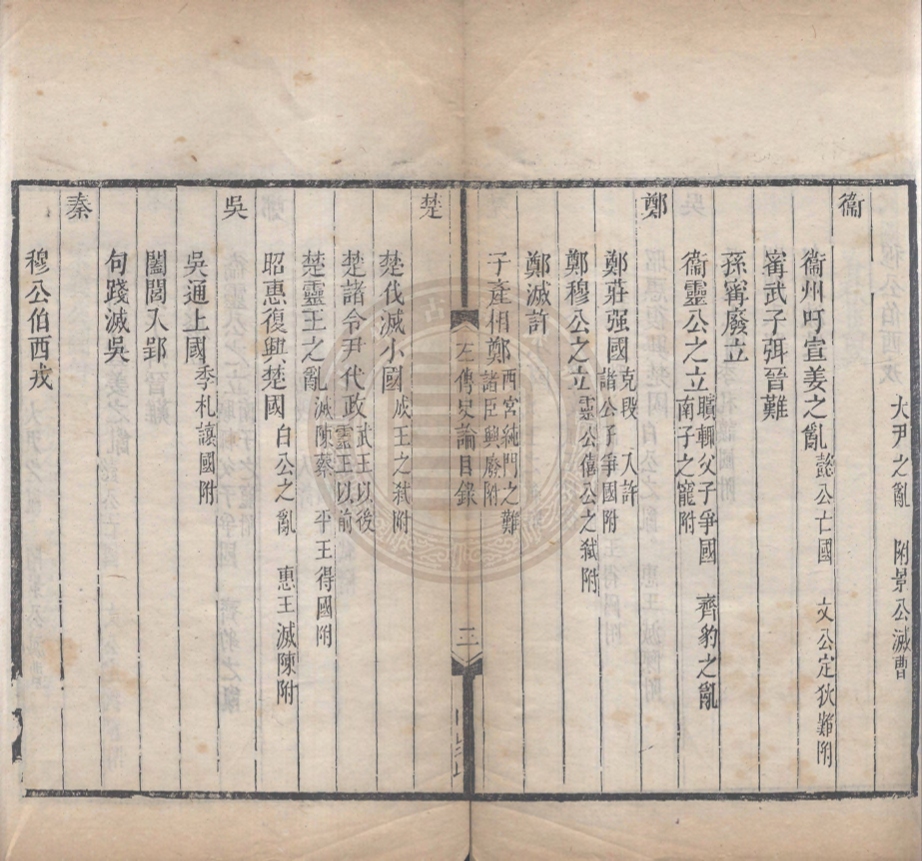 大尹之亂　附景公滅曹
衞
衞州吁宣姜之亂　懿公亡國　文公定狄難附
甯武子弭晉難
孫甯廢立
衞靈公之立　聵輒父子爭國　齊豹之亂
南子之寵附
鄭
鄭莊强國　克段　入許
諸公子爭國附
鄭穆公之立　靈公僖公之弑附
鄭滅許
子產相鄭　西宮純門之難
諸臣興廢附
左傳史論目錄　三
楚
楚伐滅小國　成王之弑附
楚諸令尹代政　武王以後
靈王以前
楚靈王之亂　滅陳蔡　平王得國附
昭惠復興楚國　白公之亂　惠王滅陳附
吳
吳通上國　季札讓國附
闔閭入郢
句踐滅吳
秦
穆公伯西戎